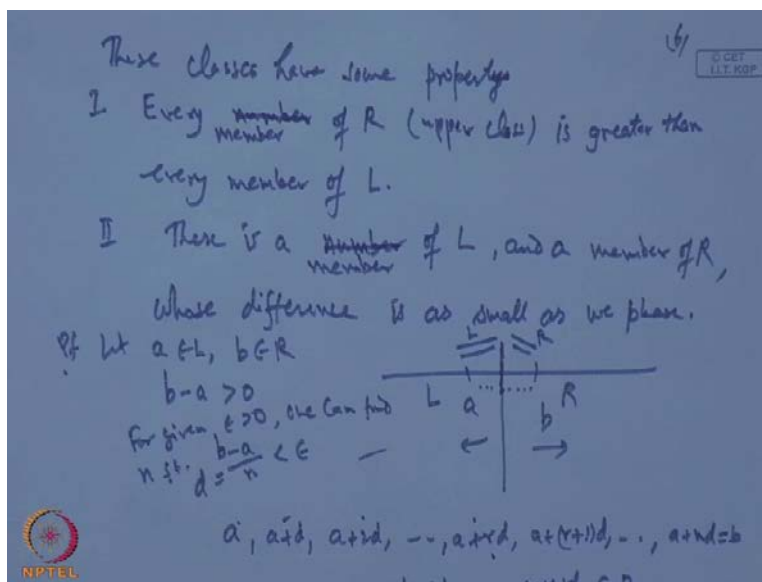 (6)
© CET
I.I.T. KGP
These classes have some propertys
I Every member of R (upper class) is greater than
every member of L.
II There is a member of L, and a member of R,
whose difference is as small as we phase.
Pf. Let a ∈ L, b ∈ R
b-a > 0
For given ε>0, one can find
n s.t. d = b-a/n < ε
L R
L a b R
a, a+d, a+2d, ---, a+rd, a+(r+1)d, --, a+nd=b
NPTEL